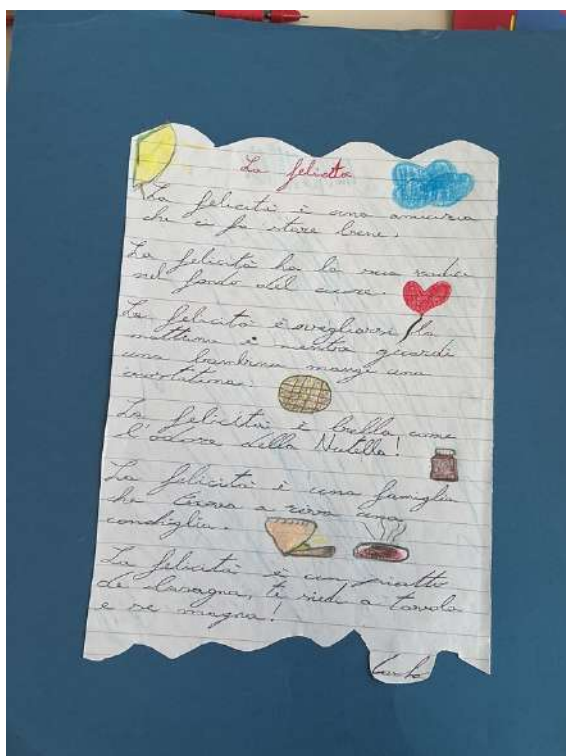 La felicità
La felicità è una amicizia
che ci fa stare bene.
La felicità ha la sua radice
nel fondo del cuore.
La felicità è svegliarsi la
mattina e mentre guardi
una bambina mangi una
crostatina.
La felicità è bella come
l'odore della Nutella!
La felicità è una famiglia
che trova a riva una
conchiglia.
La felicità è un piatto
de lasagna, te siedi a tavola
e se magna!